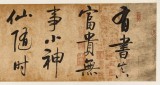 有書真
富貴無
事小神
仙隨時